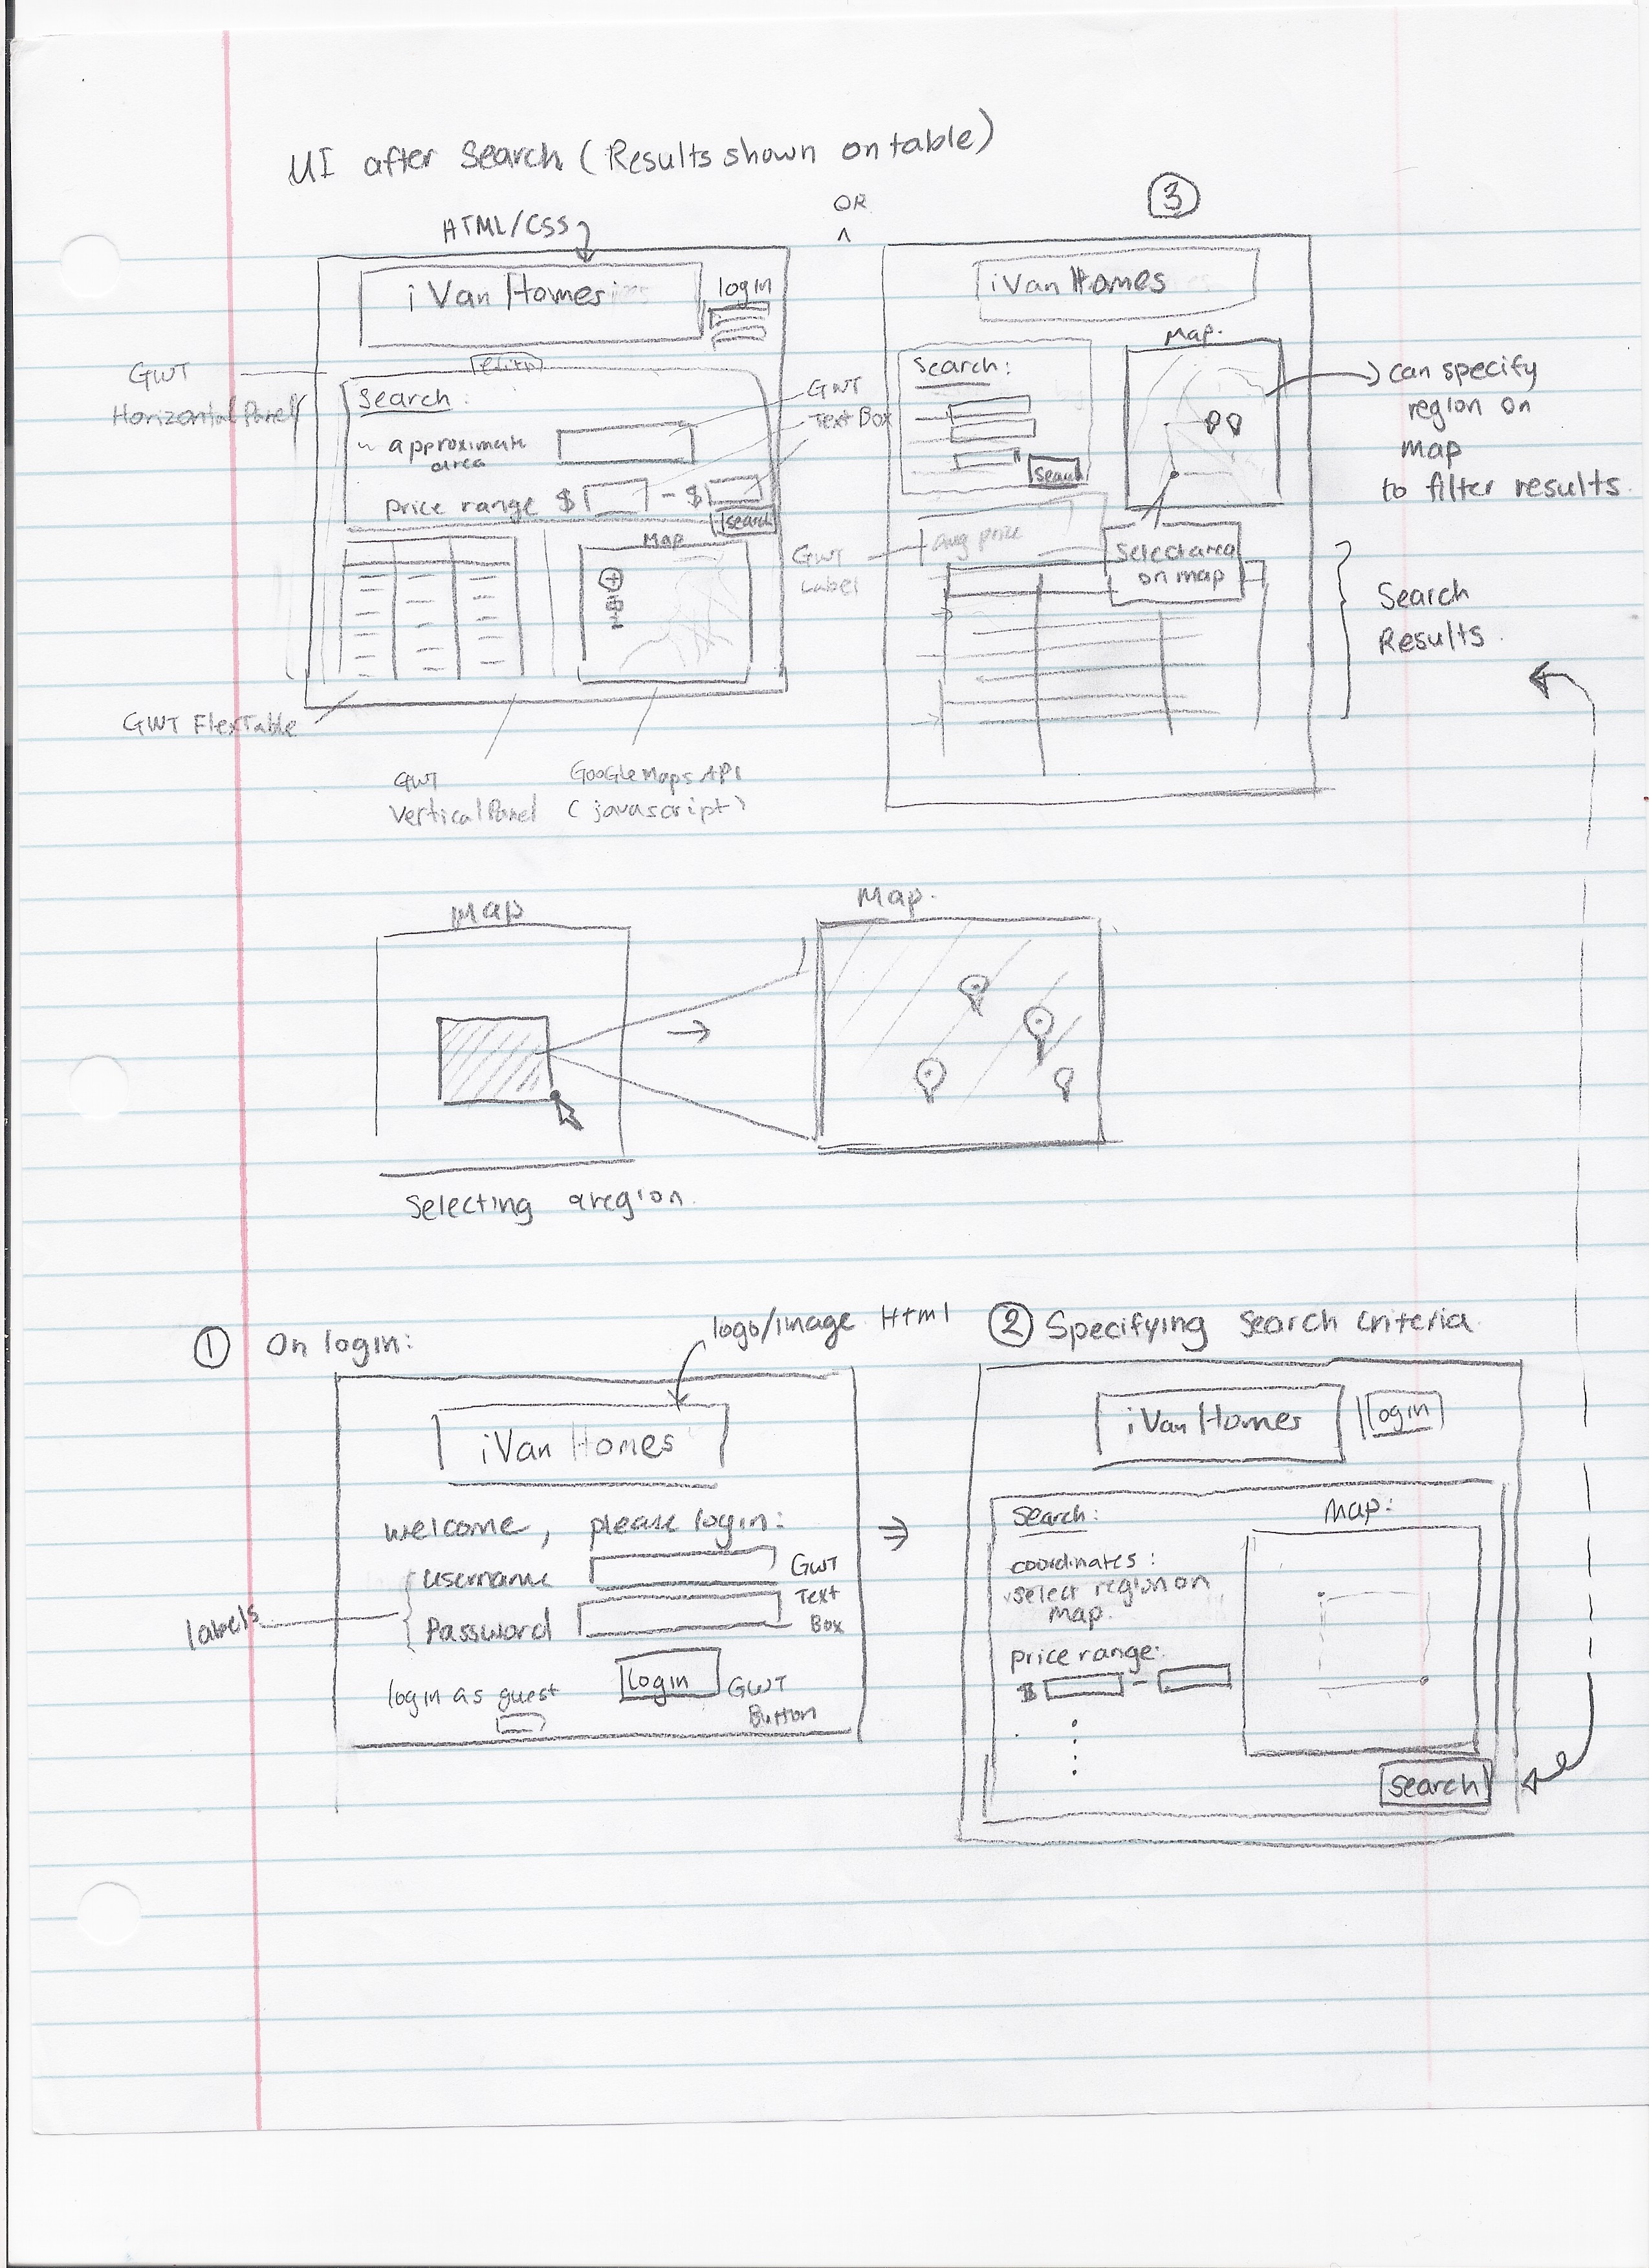 UI after Search (Results shown on table)
OR
^
3
HTML/CSS
iVanHomes
login
GWT
Horizontal Panel
Search:
approximate
area
price range $ - $
search
GWT
Text Box
Map
GWT FlexTable
GWT
Vertical Panel
Google Maps API
(javascript)
iVanHomes
Search:
Search
Map.
can specify
region on
map
to filter results
avg price
GWT
Label
Select area
on map
Search
Results
Map
Map.
Selecting a region.
1 On login:
logo/image Html
iVanHomes
welcome, please login:
username
Password
GWT
Text
Box
labels
login as guest
login
GWT
Button
2 Specifying Search Criteria
iVanHomes
login
Search:
Map:
coordinates:
select region on
map.
price range:
$ -
search